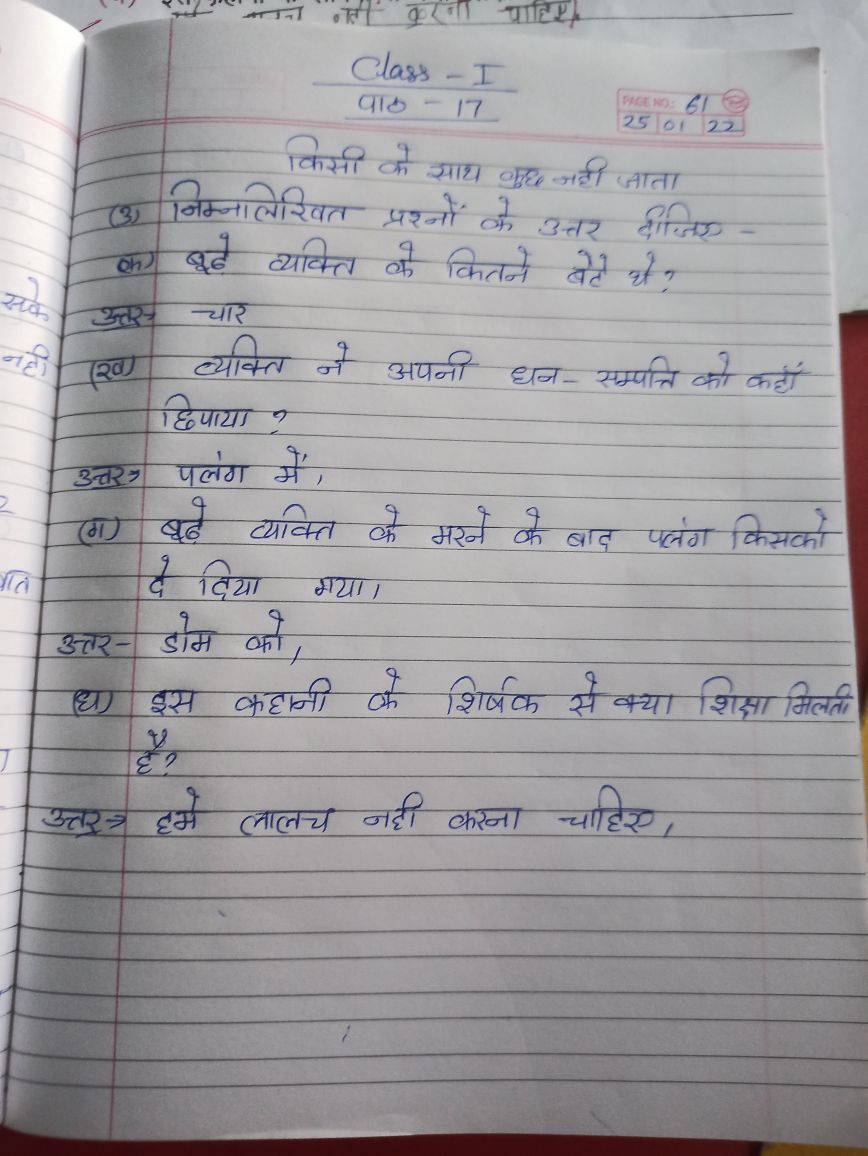 नही करना चाहिए।
Class - I
पाठ - 17
PAGE NO: 61
25 01 22
किसी के साथ कुछ नही जाता
(3) निम्नालिखित प्रश्नों के उत्तर दीजिए -
क) बूढ़े व्यक्ति के कितने बेटे थे?
सके
उत्तर→ चार
नही
(ख) व्यक्ति ने अपनी धन - सम्पत्ति को कहाँ
छिपाया ?
उत्तर→ पलंग में,
(ग) बूढ़े व्यक्ति के मरने के बाद पलंग किसको
दे दिया गया।
उत्तर- डोम को,
(घ) इस कहानी के शिर्षक से क्या शिक्षा मिलती
है?
उत्तर→ हमे लालच नही करना चाहिए,